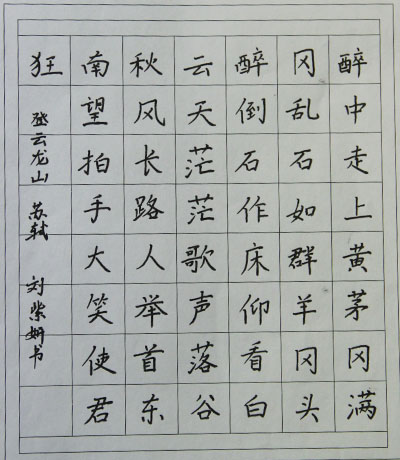 醉中走上黄茅冈满
冈乱石如群羊冈头
醉倒石作床仰看白
云天茫茫歌声落谷
秋风长路人举首东
南望拍手大笑使君
狂
登云龙山 苏轼 刘紫妍书